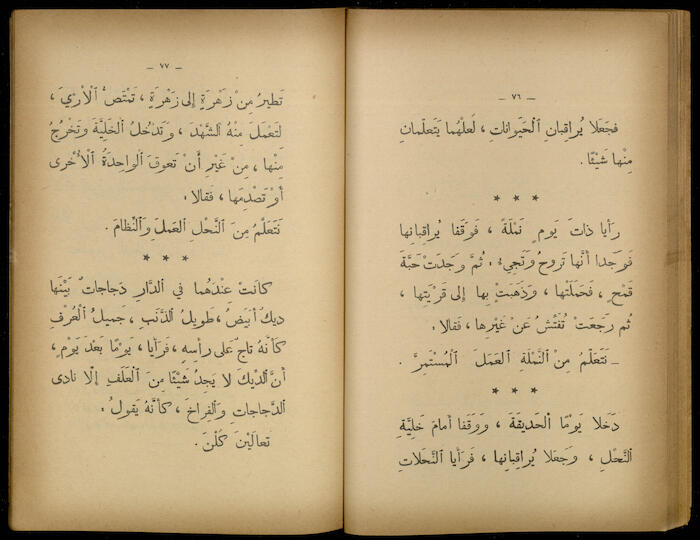 — ٧٦ —
فجَعَلا يُراقِبانِ الْحَيَواناتِ ، لَعلَّهُما يَتَعلّمانِ
مِنْها شَيْئًا .
* * *
رأيا ذاتَ يَوْمٍ نَمْلَةً ، فَوقَفا يُراقِبانِها
فَوجَدا أنَّها تَروحُ وَتَجيءُ ؛ ثُمَّ وَجَدَتْ حَبَّةَ
قَمْحٍ ، فَحَمَلَتْها ، وَذَهَبَتْ بِها إلى قَرْيَتِها ،
ثُم رَجَعَتْ تُفَتِّشُ عَنْ غَيْرِها ، فَقالا :
ــ نَتَعَلَّمُ مِنَ النَّمْلَةِ الْعَمَلَ الْمُسْتَمِرَّ .
* * *
دَخَلا يَوْمًا الْحَديقَةَ ، وَوَقَفا أمامَ خَلِيَّةِ
النَّحْلِ ، وَجَعَلا يُراقِبانِها ، فَرَأيا النَّحَلاتِ
— ٧٧ —
تَطيرُ مِنْ زَهْرَةٍ إلى زَهْرَةٍ ، تَمْتَصُّ الْأرْيَ ،
لِتَعْمَلَ مِنْهُ الشَّهْدَ ، وَتَدْخُلُ الْخَلِيَّةَ وَتَخْرُجُ
مِنْها ، مِنْ غَيْرِ أنْ تَعوقَ الْواحِدَةُ الْأُخْرى
أوْ تَصْدِمَها ، فَقالا :
نَتَعَلَّمُ مِنَ النَّحْلِ العَمَلَ وَالنِّظامَ .
* * *
كانَتْ عِنْدَهُما في الدّارِ دَجاجاتٌ بَيْنَها
ديكٌ أبْيَضُ ، طَويلُ الذَّنَبِ ، جَميلُ الْعُرْفِ
كَأنَّهُ تاجٌ عَلى رأسِهِ ، فَرَأيا ، يَوْمًا بَعْدَ يَوْمٍ ،
أنَّ الدّيكَ لا يَجِدُ شَيْئًا مِنَ الْعَلَفِ إلّا نادى
الدَّجاجاتِ وَالْفِراخَ ، كَأنَّهُ يَقولُ :
تَعالَيْنَ كُلْنَ .